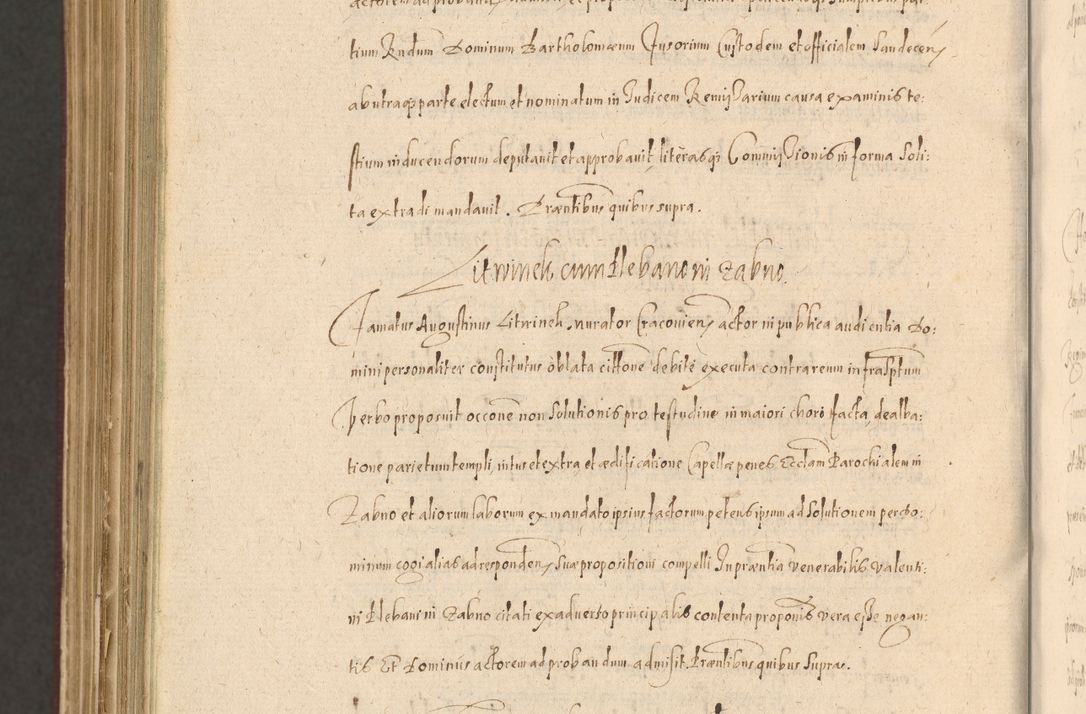 tium Rndum Dominum Bartholomæum Jusorium Custodem et officialem Sandecen
ab utraq parte electum et nominatum in Judicem Remissarium causa examinis te:
stium in ducendorum deputavit et approbavit, literasq Commissionis in forma Soli:
ta extradi mandavit. Præntibus quibus supra.
Litwinek cum Plebano in Zabno.
Famatus Augustinus Litwinek murator Cracovien actor in publica audientia Do:
mini personaliter constitutus oblata cittone debite executa contra reum infrasptum
verbo proposuit occone non Solutionis pro testudine in maiori choro facta, dealba:
tione parietum templi, intus et extra, et ædificatione Capellæ penes Ecclam Parochialem in
Zabno et aliorum laborum ex mandato ipsius factorum, petens ipsum ad Solutionem per do:
minum cogi alias ad responden suæ propositioni compelli In præntia venerabilis Valenti:
ni Plebani in Zabno citati ex adverso principalis contenta proponis vera esse negan:
tis Et Dominus actorem ad probandum admisit. Præntibus quibus Supra.